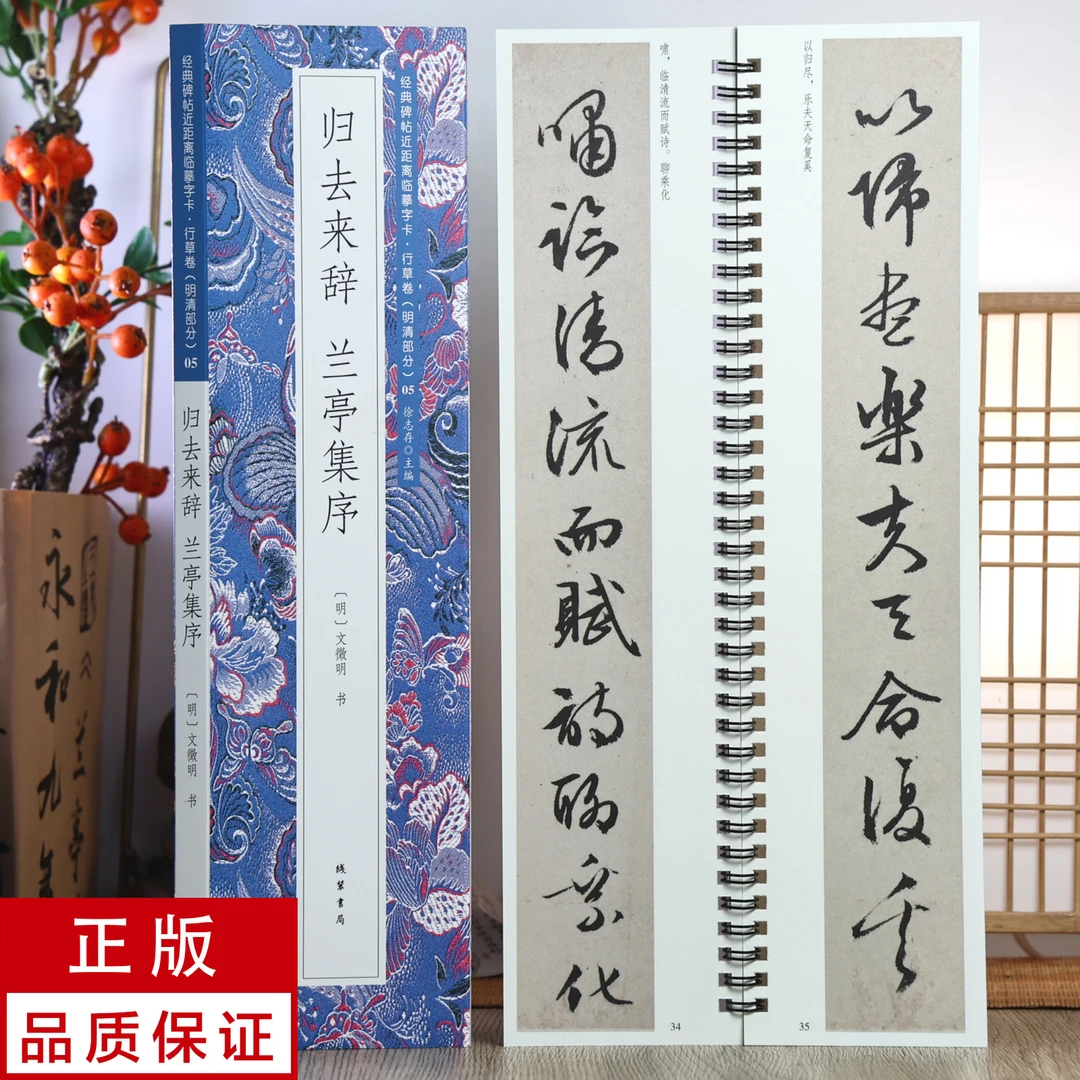 经典碑帖近距离临摹字卡·行草卷（明清部分） 05
归去来辞 兰亭集序
〔明〕文徵明 书
归去来辞 兰亭集序
〔明〕文徵明 书
线装书局
经典碑帖近距离临摹字卡·行草卷（明清部分） 05 徐志存◎主编
嘯臨清流而賦詩聊乘化
啸，临清流而赋诗。聊乘化
34
以归尽，乐夫天命复奚
以歸盡樂夫天命復奚
35
永和九年
兰亭
正版
品质保证